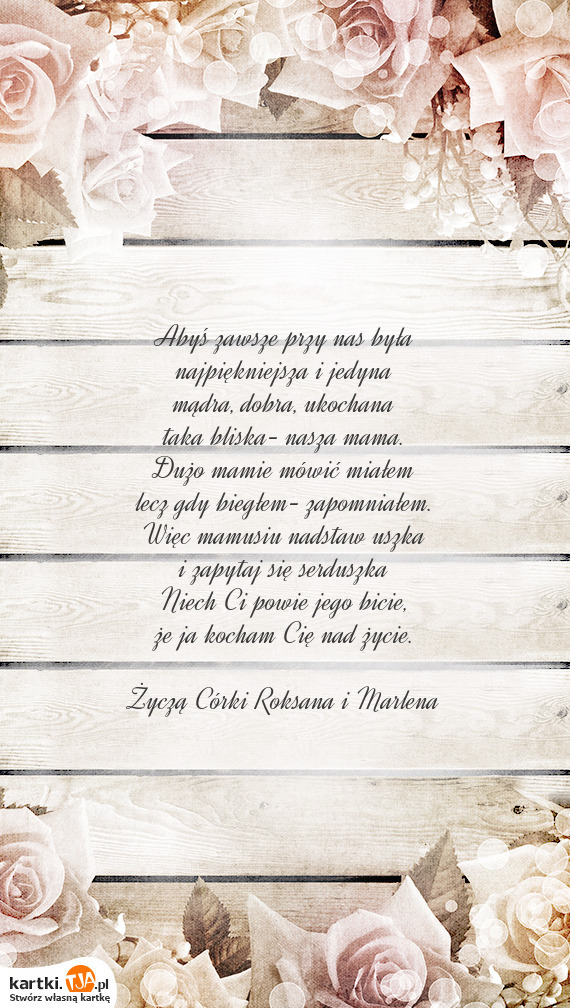 Abyś zawsze przy nas była
najpiękniejsza i jedyna
mądra, dobra, ukochana
taka bliska- nasza mama.
Dużo mamie mówić miałem
lecz gdy biegłem- zapomniałem.
Więc mamusiu nadstaw uszka
i zapytaj się serduszka
Niech Ci powie jego bicie,
że ja kocham Cię nad życie.
Życzą Córki Roksana i Marlena
kartki.TJA.pl
Stwórz własną kartkę